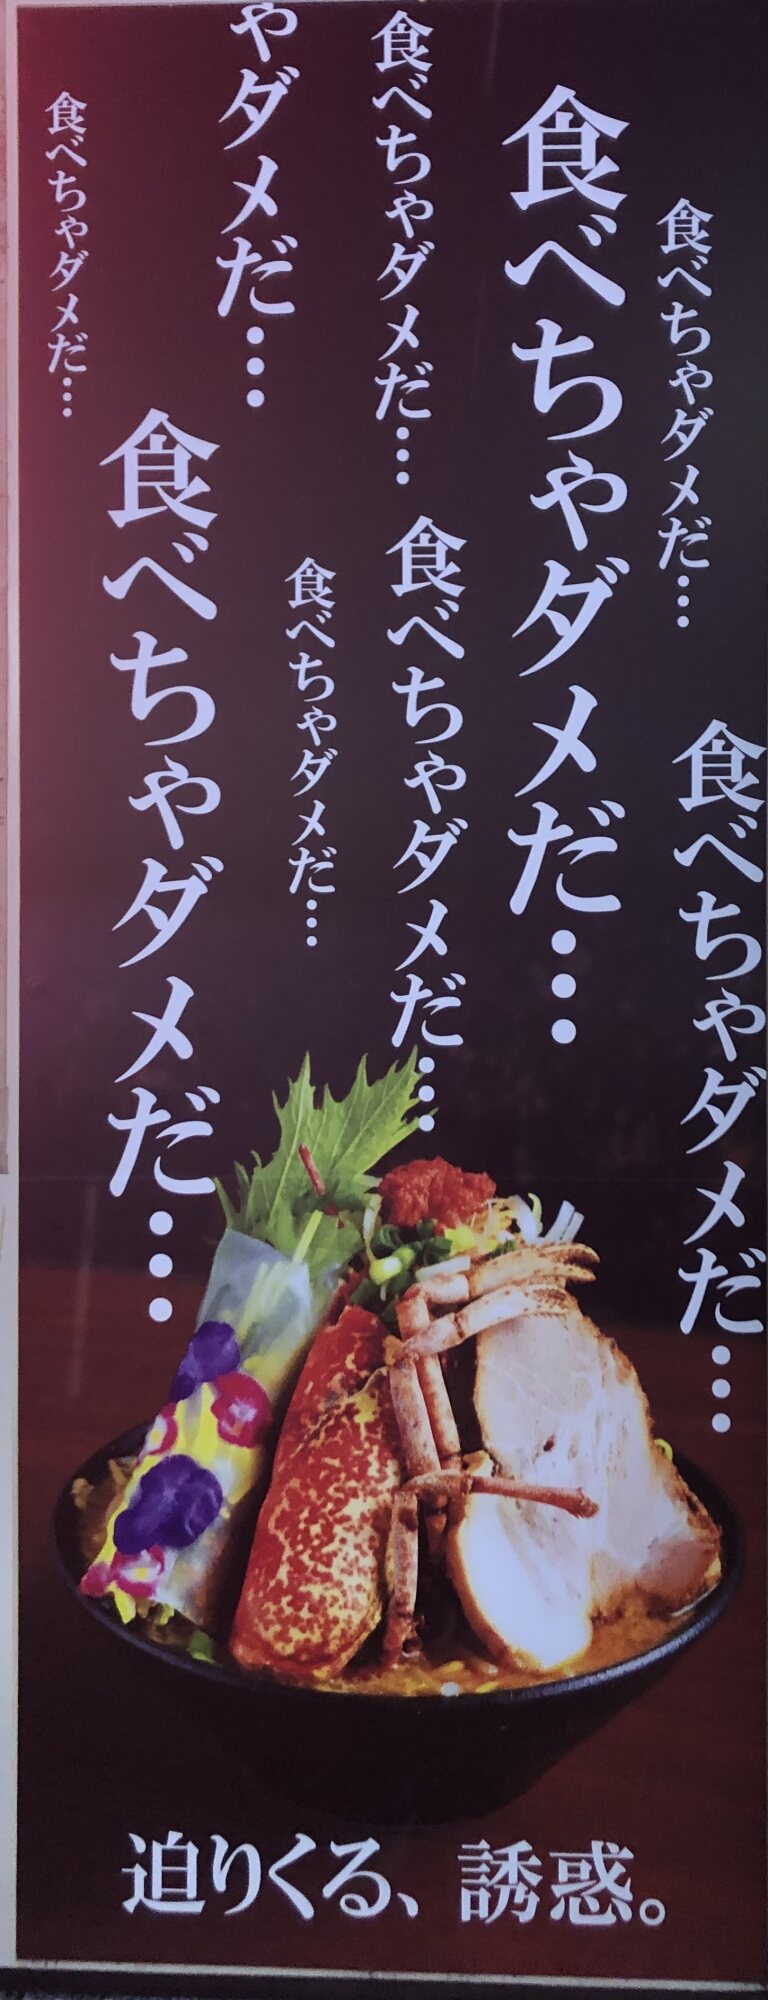 食べちゃダメだ…
食べちゃダメだ…
食べちゃダメだ…
食べちゃダメだ…
食べちゃダメだ…
食べちゃダメだ…
ゃダメだ…
食べちゃダメだ…
食べちゃダメだ…
迫りくる、誘惑。